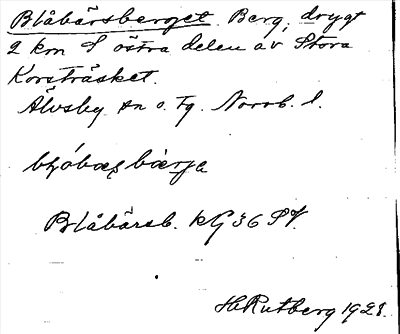 Blåbärsberget. Berg, drygt
2 km S östra delen av Stora
Korsträsket.
Älvsby sn o. tg. Norrb. l.
Blåbärsb. kG 36 SV.
H Rutberg 1928.